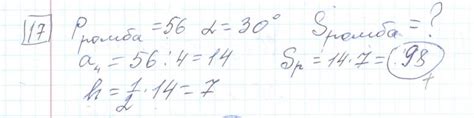 17 Pромба = 56 α = 30° Sромба = ?
a₄ = 56 : 4 = 14 Sр = 14 · 7 = 98
h = 1/2 · 14 = 7 +